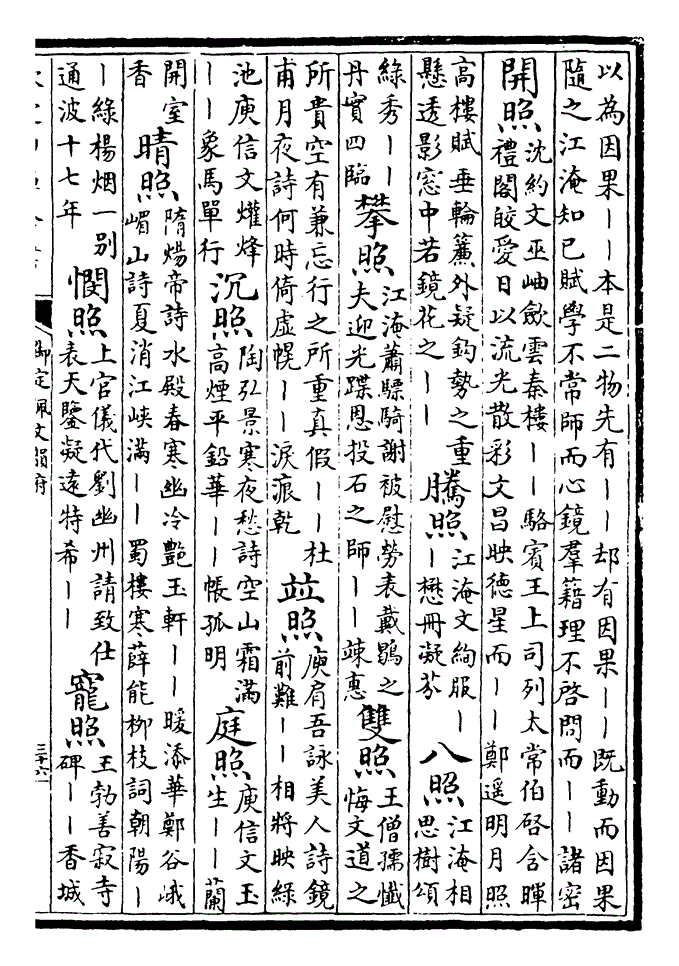 以為因果丨丨本是二物先有丨丨却有因果丨丨既動而因果
隨之江淹知己賦學不常師而心鏡羣籍理不啓問而丨丨諸密
開照
沈約文巫岫歛雲秦樓丨丨駱賓王上司列太常伯啓含暉
禮閣皎愛日以流光散彩文昌映德星而丨丨鄭遥明月照
高樓賦垂輪簾外疑鈎勢之重
懸透影窓中若鏡花之丨丨
騰照
江淹文絢服丨
丨懋冊凝芬
八照
江淹相
思樹頌
綠秀丨丨
丹實四臨
攀照
江淹蕭驃騎謝被慰勞表戴鶡之
夫迎光蹀恩投石之師丨丨竦惠
雙照
王僧孺懺
悔文道之
所貴空有兼忘行之所重真假丨丨杜
甫月夜詩何時倚虛幌丨丨淚痕乾
並照
庾肩吾詠美人詩鏡
前難丨丨相將映綠
池庾信文爟烽
丨丨象馬單行
沉照
陶弘景寒夜愁詩空山霜滿
高煙平鉛華丨丨帳孤明
庭照
庾信文玉
生丨丨蘭
開室
香
晴照
隋煬帝詩水殿春寒幽冷艷玉軒丨丨暖添華鄭谷峨
嵋山詩夏消江峽滿丨丨蜀樓寒薛能柳枝詞朝陽丨
丨綠楊烟一别
通波十七年
憫照
上官儀代劉幽州請致仕
表天鑒凝遠特希丨丨
寵照
王勃善寂寺
碑丨丨香城
御定佩文韻府
三十六